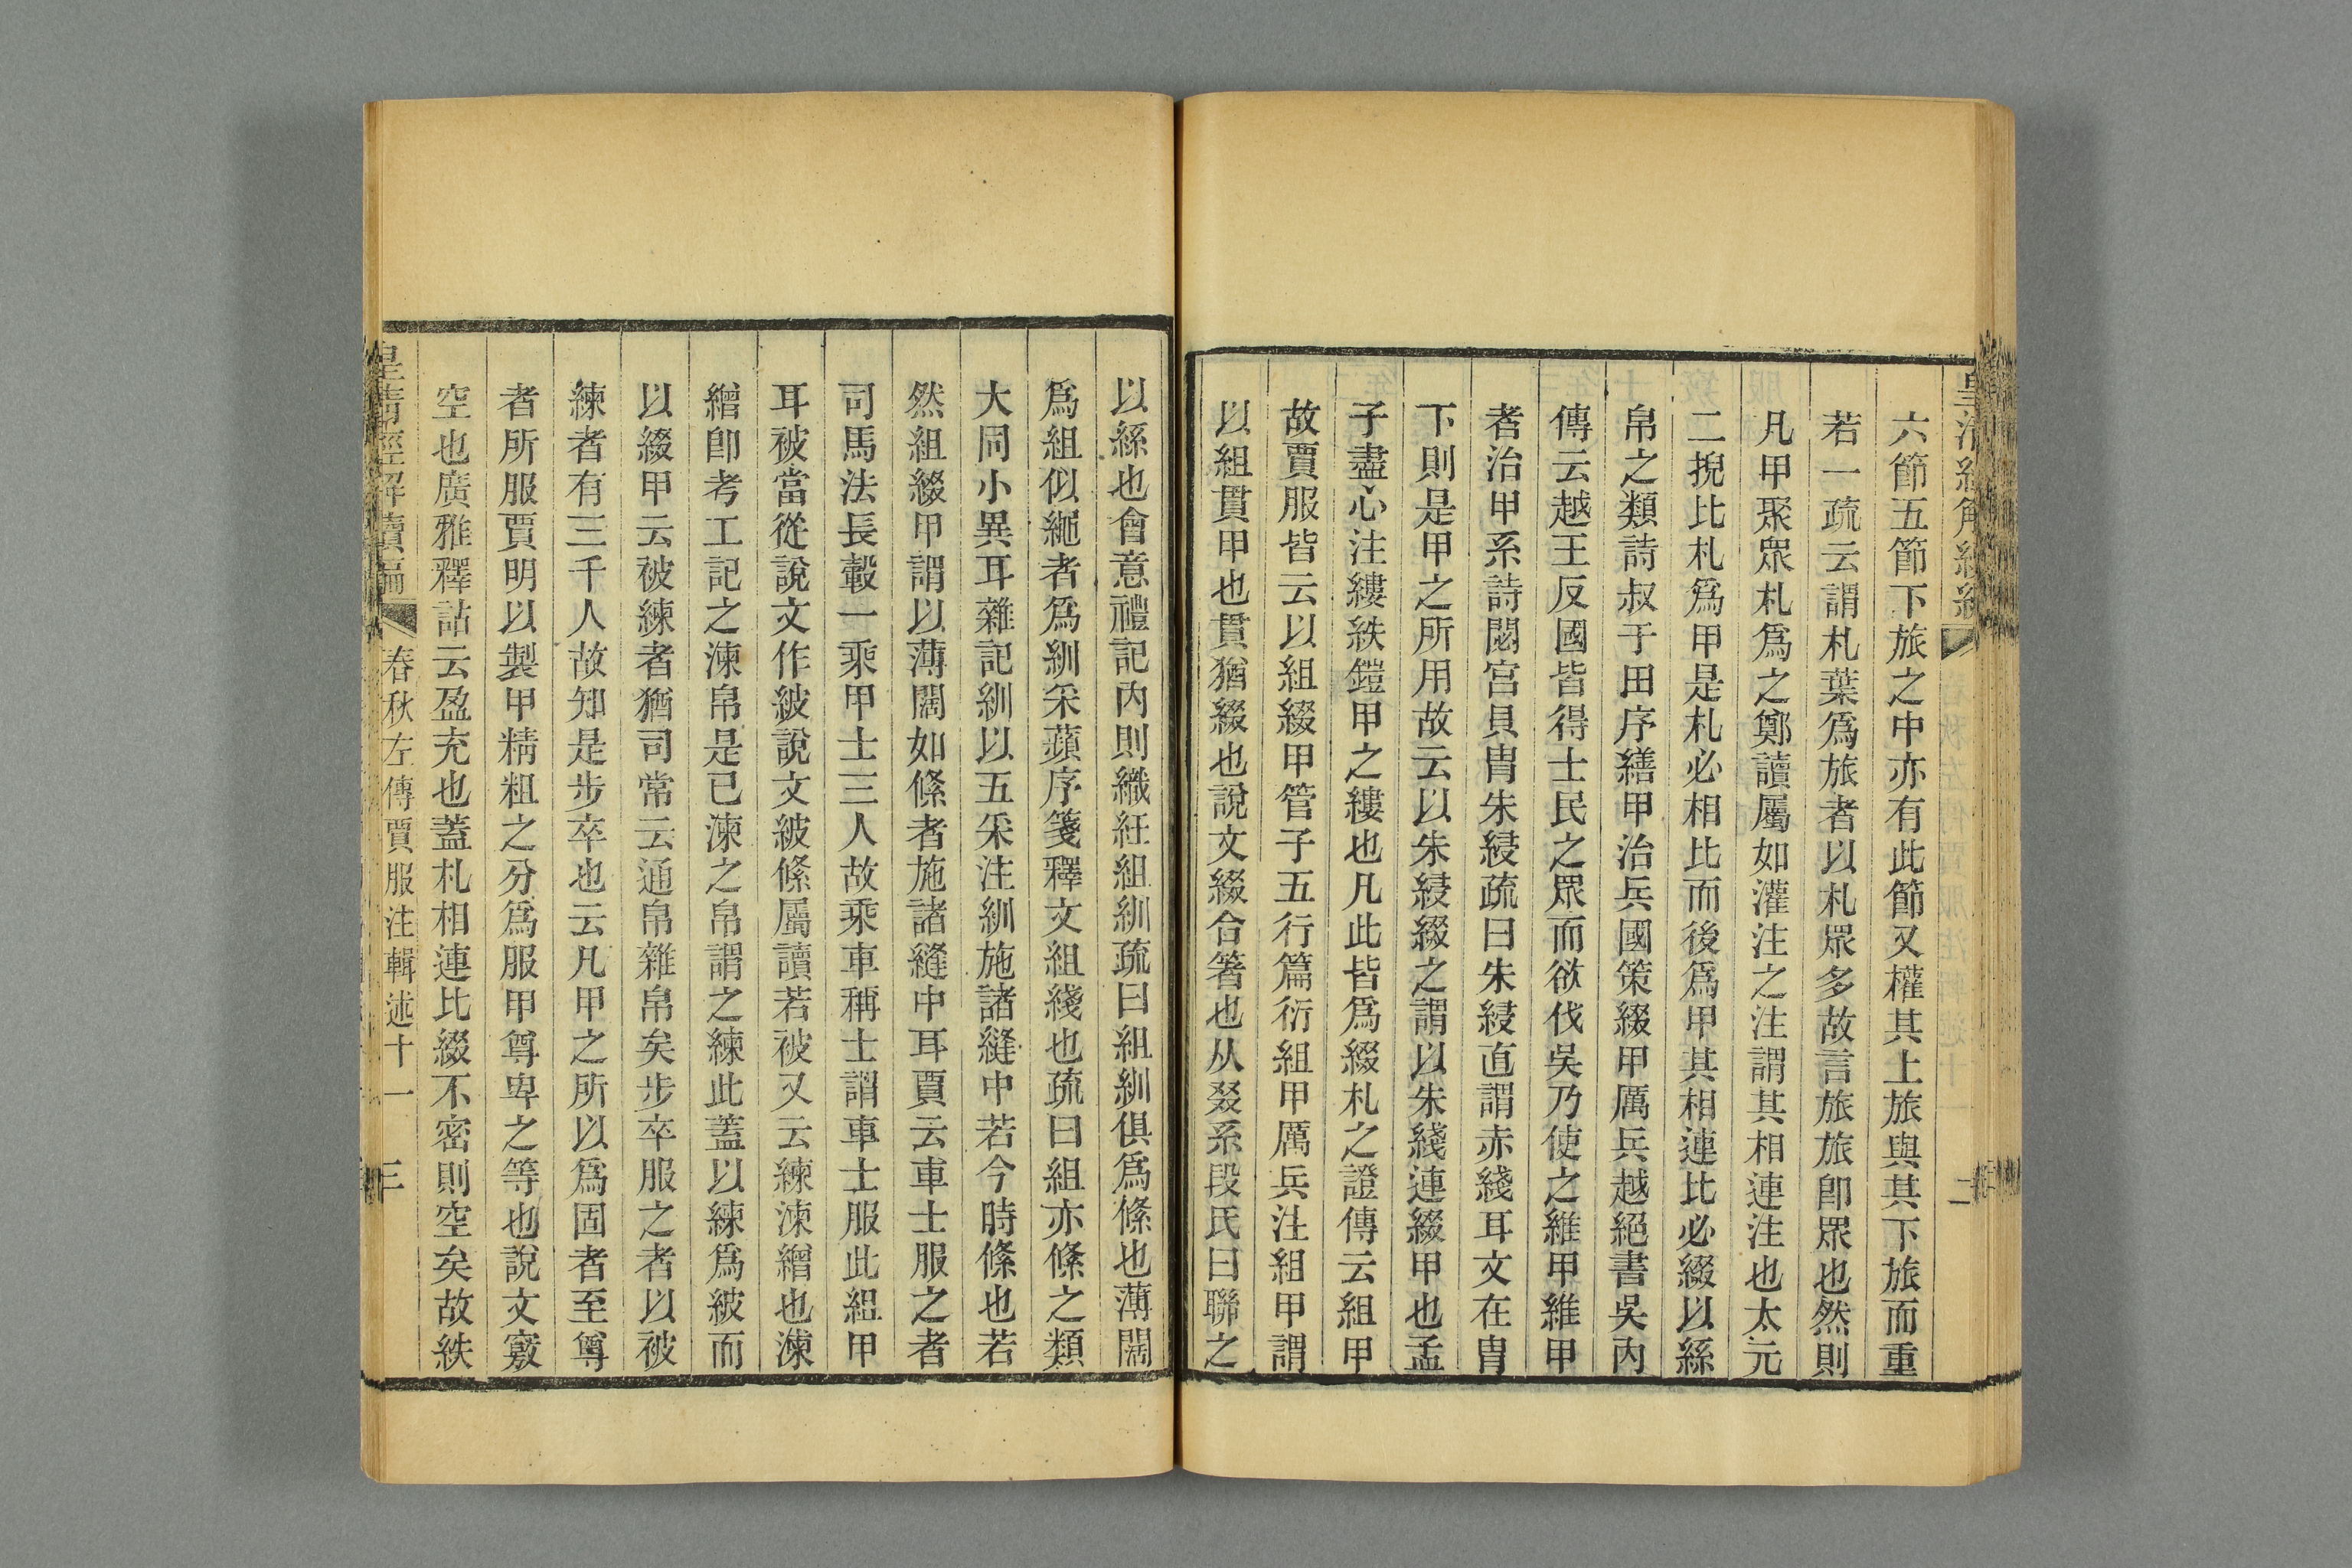 六節五節下旅之中亦有此節又權其上旅與其下旅而重
若一疏云謂札葉爲旅者以札眾多故言旅旅卽眾也然則
凡甲聚眾札爲之鄭讀屬如灌注之注謂其相連注也太元
二掜比札爲甲是札必相比而後爲甲其相連比必綴以絲
帛之類詩叔于田序繕甲治兵國策綴甲厲兵越絕書吳內
傳云越王反國皆得士民之眾而欲伐吳乃使之維甲維甲
者治甲系詩閟宮貝冑朱綅疏曰朱綅直謂赤綫耳文在冑
下則是甲之所用故云以朱綅綴之謂以朱綫連綴甲也孟
子盡心注縷紩鎧甲之縷也凡此皆爲綴札之證傳云組甲
故賈服皆云以組綴甲管子五行篇衍組甲厲兵注組甲謂
以組貫甲也貫猶綴也說文綴合箸也从叕系段氏曰聯之
以絲也會意禮記內則織紝組紃疏曰組紃俱爲絛也薄闊
爲組似繩者爲紃采蘋序箋釋文組綫也疏曰組亦絛之類
大同小異耳雜記紃以五采注紃施諸縫中若今時絛也若
然組綴甲謂以薄闊如絛者施諸縫中耳賈云車士服之者
司馬法長轂一乘甲士三人故乘車稱士謂車士服此組甲
耳被當從說文作紴說文紴絛屬讀若被又云練湅繒也湅
繒卽考工記之湅帛是已湅之帛謂之練此蓋以練爲紴而
以綴甲云被練者猶司常云通帛雜帛矣步卒服之者以被
練者有三千人故知是步卒也云凡甲之所以爲固者至尊
者所服賈明以製甲精粗之分爲服甲尊卑之等也說文竅
空也廣雅釋詁云盈充也蓋札相連比綴不密則空矣故紩
皇清經解續編
春秋左傳賈服注輯述十一
三